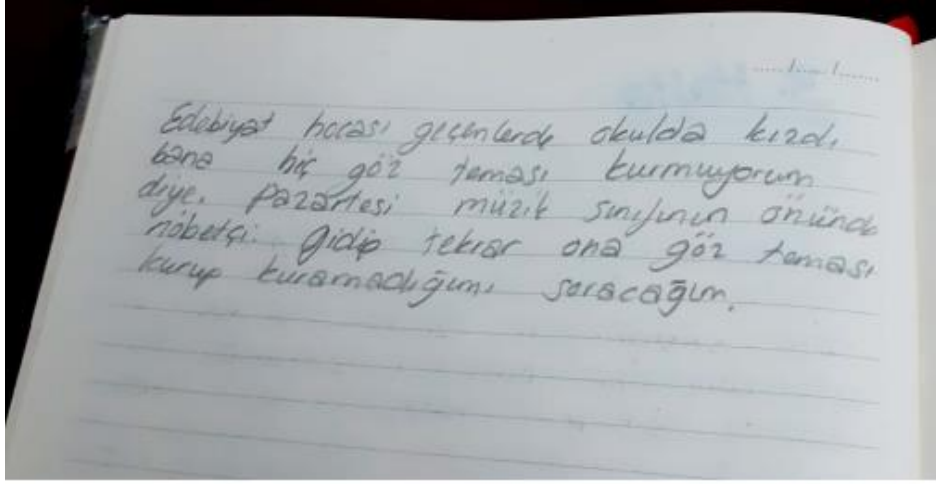 ...../...../.......
Edebiyat hocası geçenlerde okulda kızdı
bana hiç göz teması kurmuyorum
diye. Pazartesi müzik sınıfının önünde
nöbetçi. Gidip tekrar ona göz teması
kurup kuramadığımı soracağım.